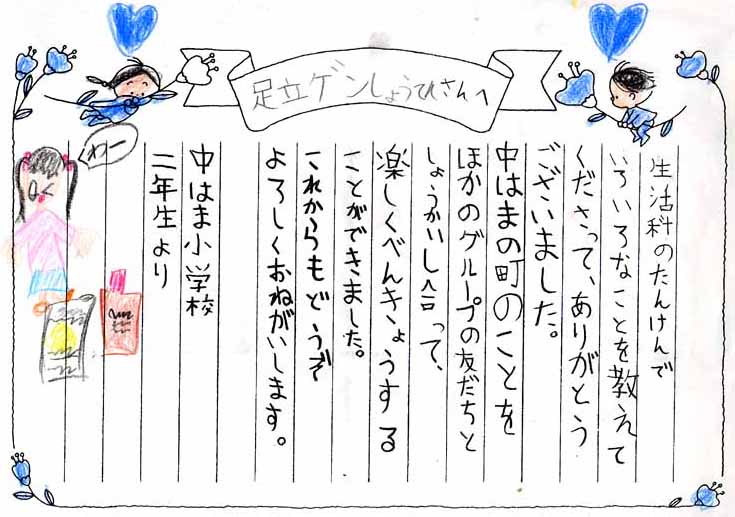 足立ゲンしょうてんさんへ
生活科のたんけんで
いろいろなことを教えて
くださって、ありがとう
ございました。
中はまの町のことを
ほかのグループの友だちと
しょうかいし合って、
楽しくべんきょうする
ことができました。
これからもどうぞ
よろしくおねがいします。
中はま小学校
二年生より
わー